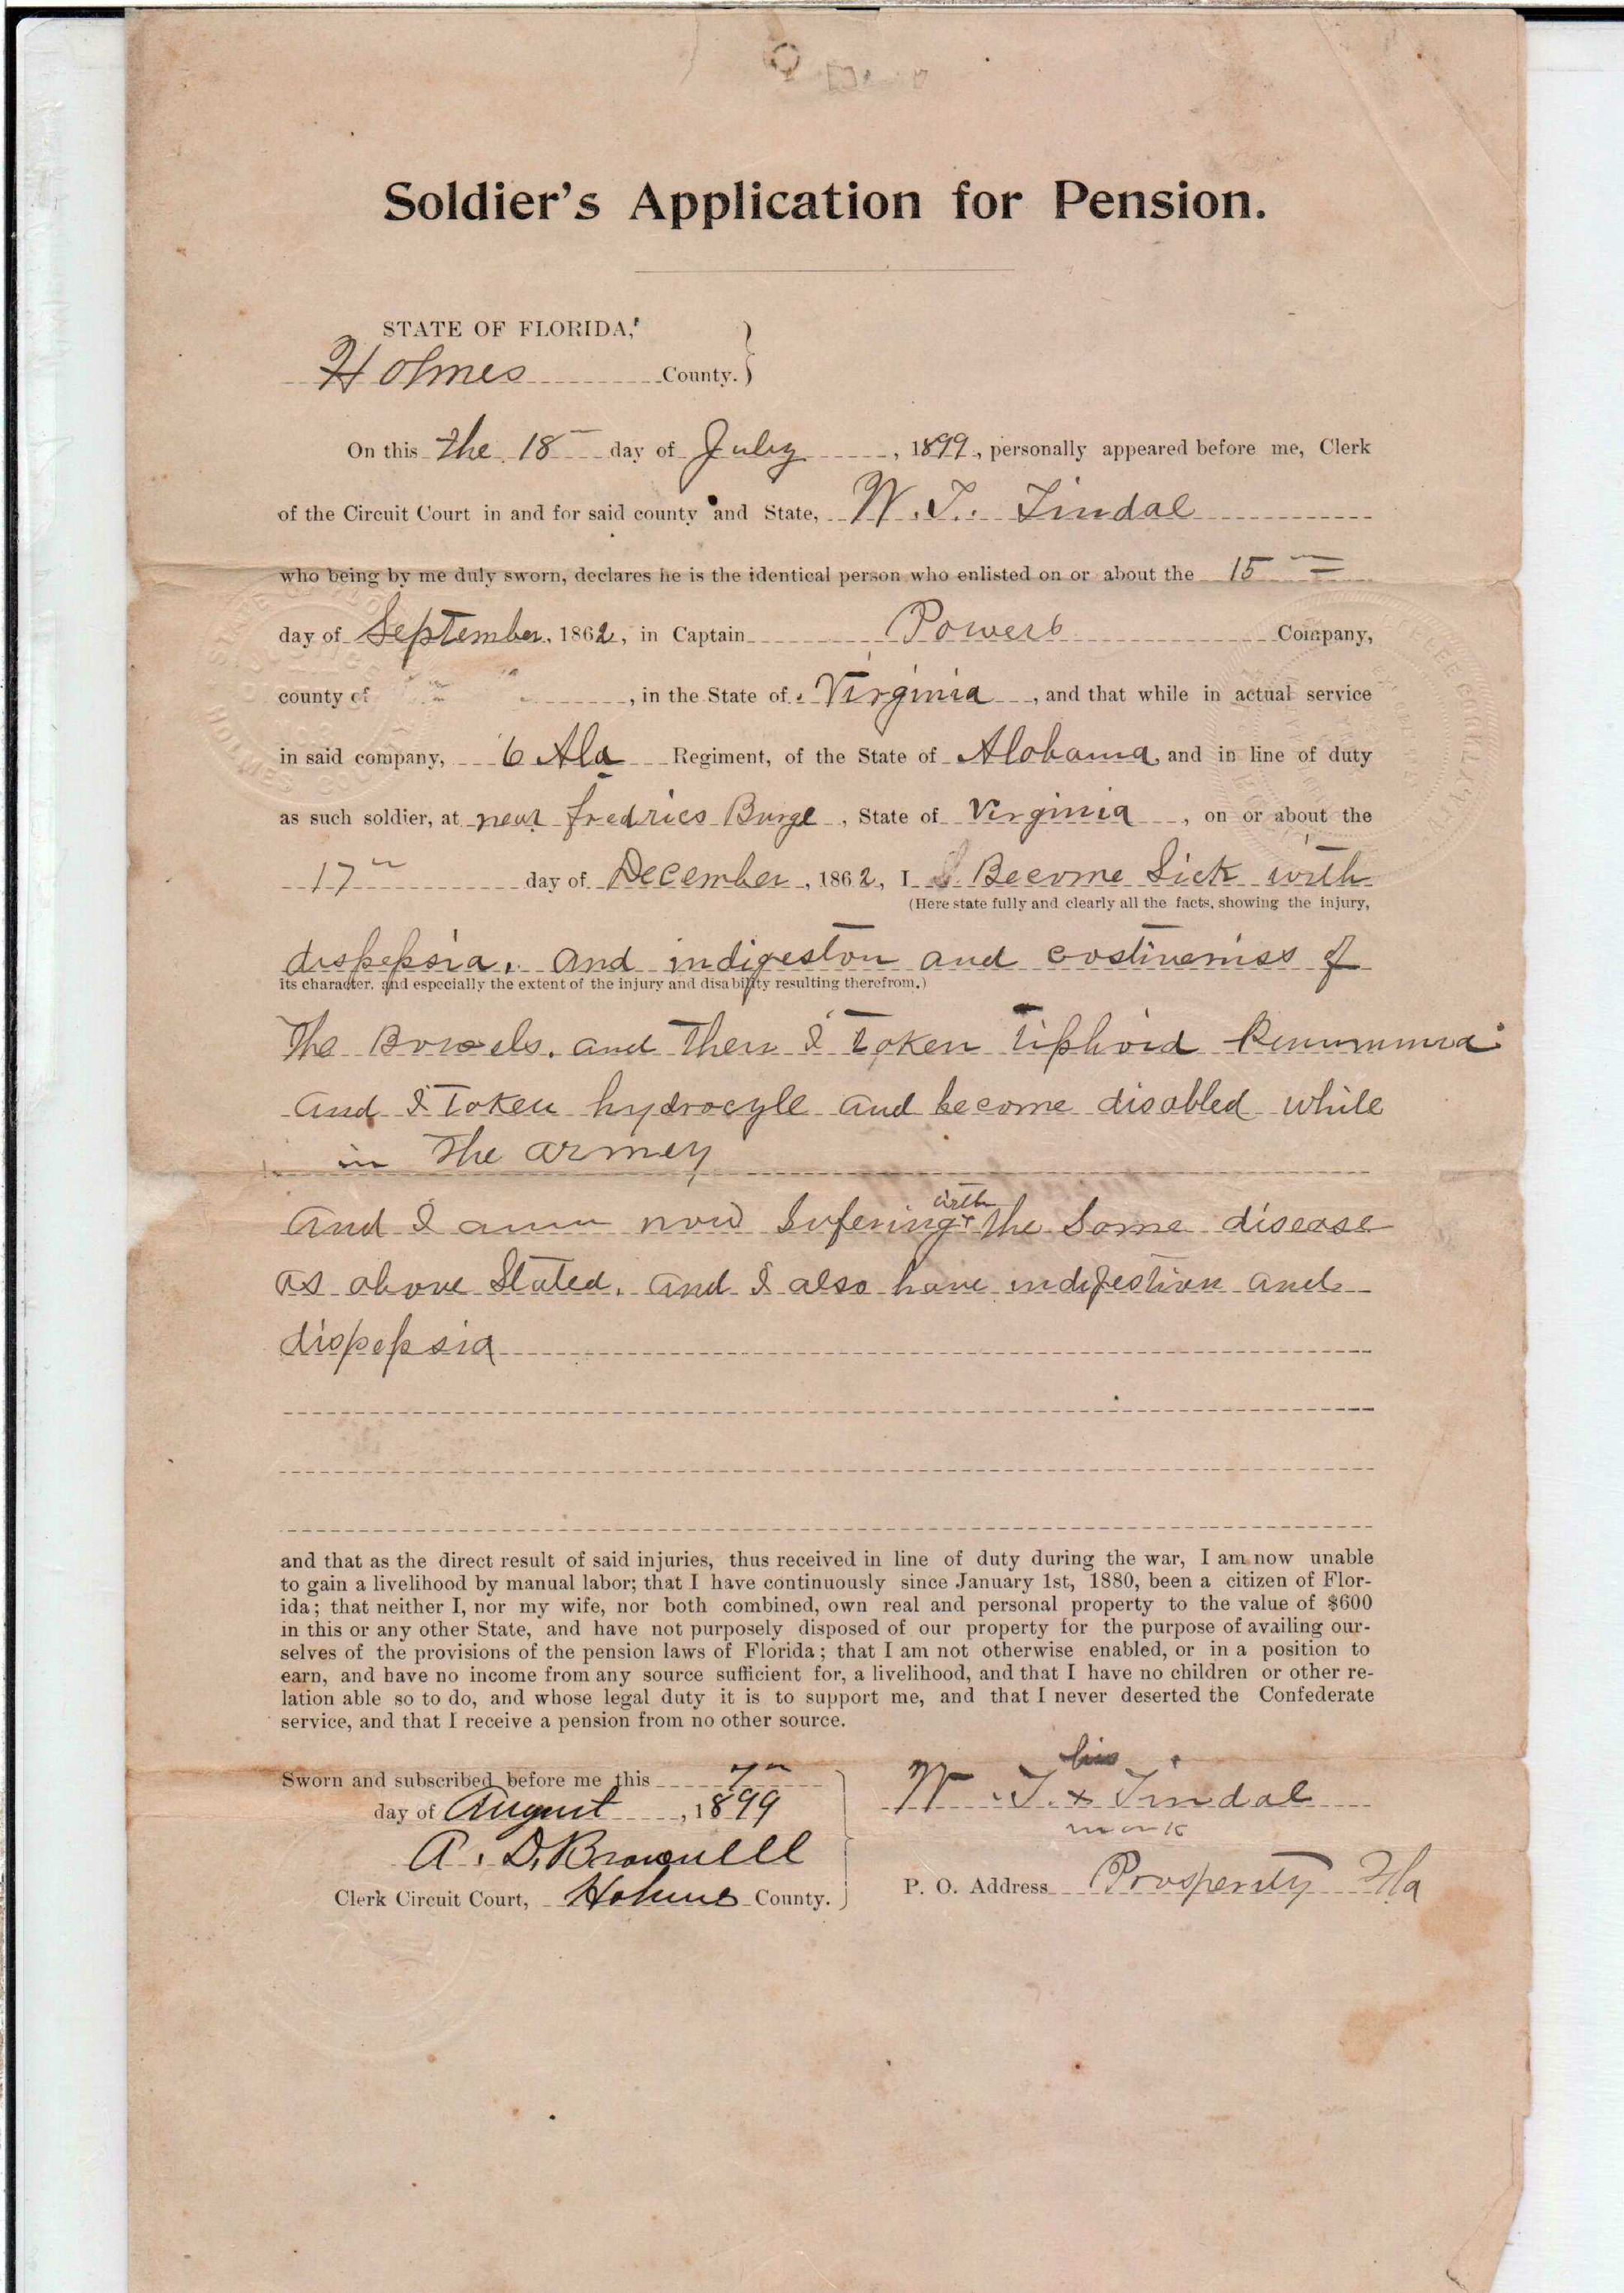 Soldier's Application for Pension.
STATE OF FLORIDA,
Holmes County. }
On this the 18 day of July, 1899, personally appeared before me, Clerk
of the Circuit Court in and for said county and State, W. T. Tindal
who being by me duly sworn, declares he is the identical person who enlisted on or about the 15
day of September, 1862, in Captain Powers Company,
county of , in the State of Virginia, and that while in actual service
in said company, 6 Ala Regiment, of the State of Alobama, and in line of duty
as such soldier, at near fredrics Burge, State of Virginia, on or about the
17 day of December, 1862, I I Become Sick with
(Here state fully and clearly all the facts, showing the injury,
dispepsia. and indigeston and costiveniss of
its character, and especially the extent of the injury and disability resulting therefrom.)
The Bowels. and Then I Token tiphoid
and I Token hydrocyle and become disobled while
in The armey
with
and I amm now Sufering the Same disease
as above Stated. and I also have indigestion and
dispepsia
and that as the direct result of said injuries, thus received in line of duty during the war, I am now unable
to gain a livelihood by manual labor; that I have continuously since January 1st, 1880, been a citizen of Flor-
ida; that neither I, nor my wife, nor both combined, own real and personal property to the value of $600
in this or any other State, and have not purposely disposed of our property for the purpose of availing our-
selves of the provisions of the pension laws of Florida; that I am not otherwise enabled, or in a position to
earn, and have no income from any source sufficient for, a livelihood, and that I have no children or other re-
lation able so to do, and whose legal duty it is to support me, and that I never deserted the Confederate
service, and that I receive a pension from no other source.
Sworn and subscribed before me this 7
day of August, 1899
his
W. T. x Tindal
mark
A. D. Brownell
Clerk Circuit Court, Holmes County.
P. O. Address Prosperity Fla